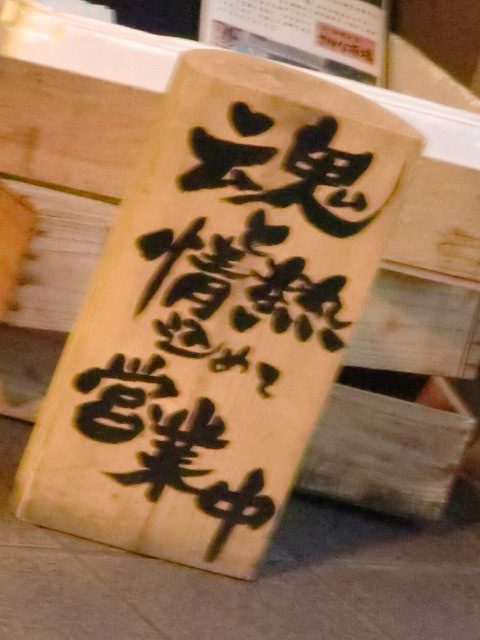 魂
と
情熱
込めて
営業中